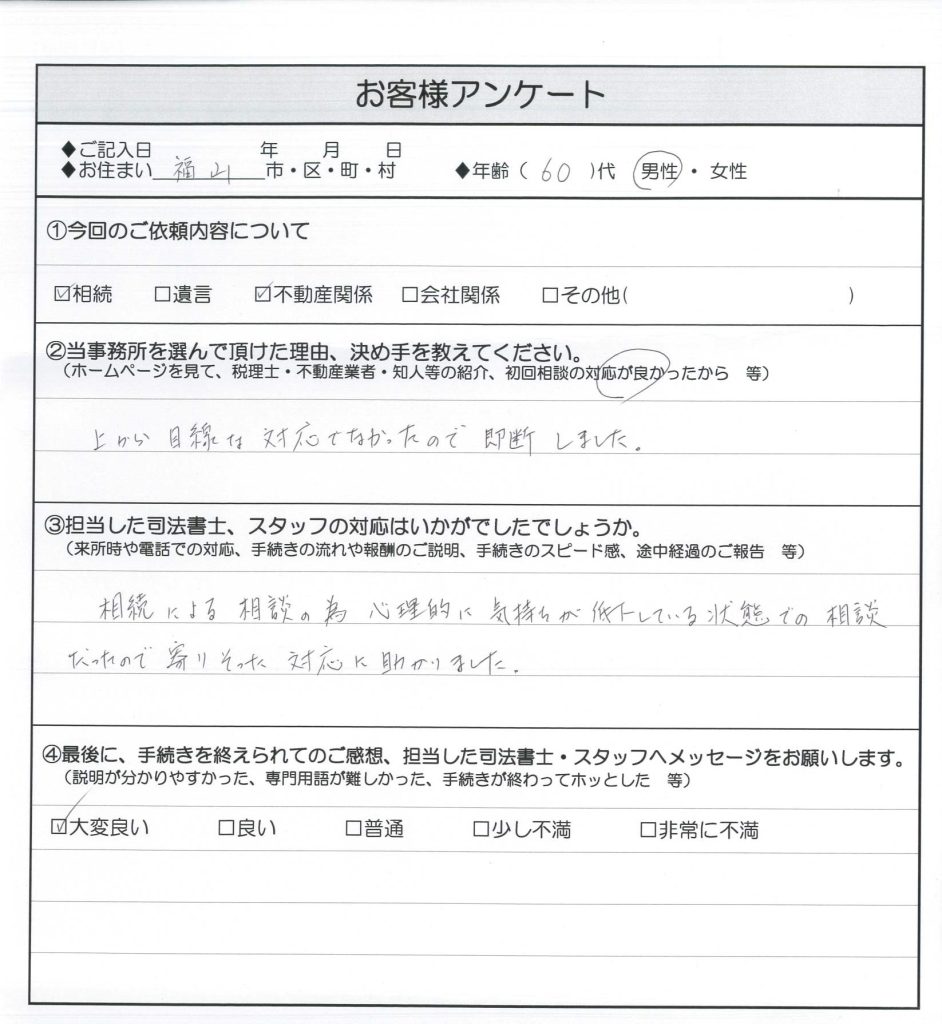 お客様アンケート
◆ご記入日 年 月 日
◆お住まい 福山 市・区・町・村 ◆年齢（ 60 ）代 男性・女性
①今回のご依頼内容について
☑相続 □遺言 ☑不動産関係 □会社関係 □その他( )
②当事務所を選んで頂けた理由、決め手を教えてください。
（ホームページを見て、税理士・不動産業者・知人等の紹介、初回相談の対応が良かったから 等）
上から目線な対応でなかったので即断しました。
③担当した司法書士、スタッフの対応はいかがでしたでしょうか。
（来所時や電話での対応、手続きの流れや報酬のご説明、手続きのスピード感、途中経過のご報告 等）
相続による相談の為心理的に気持ちが低下している状態での相談
だったので寄りそった対応に助かりました。
④最後に、手続きを終えられてのご感想、担当した司法書士・スタッフへメッセージをお願いします。
（説明が分かりやすかった、専門用語が難しかった、手続きが終わってホッとした 等）
☑大変良い □良い □普通 □少し不満 □非常に不満